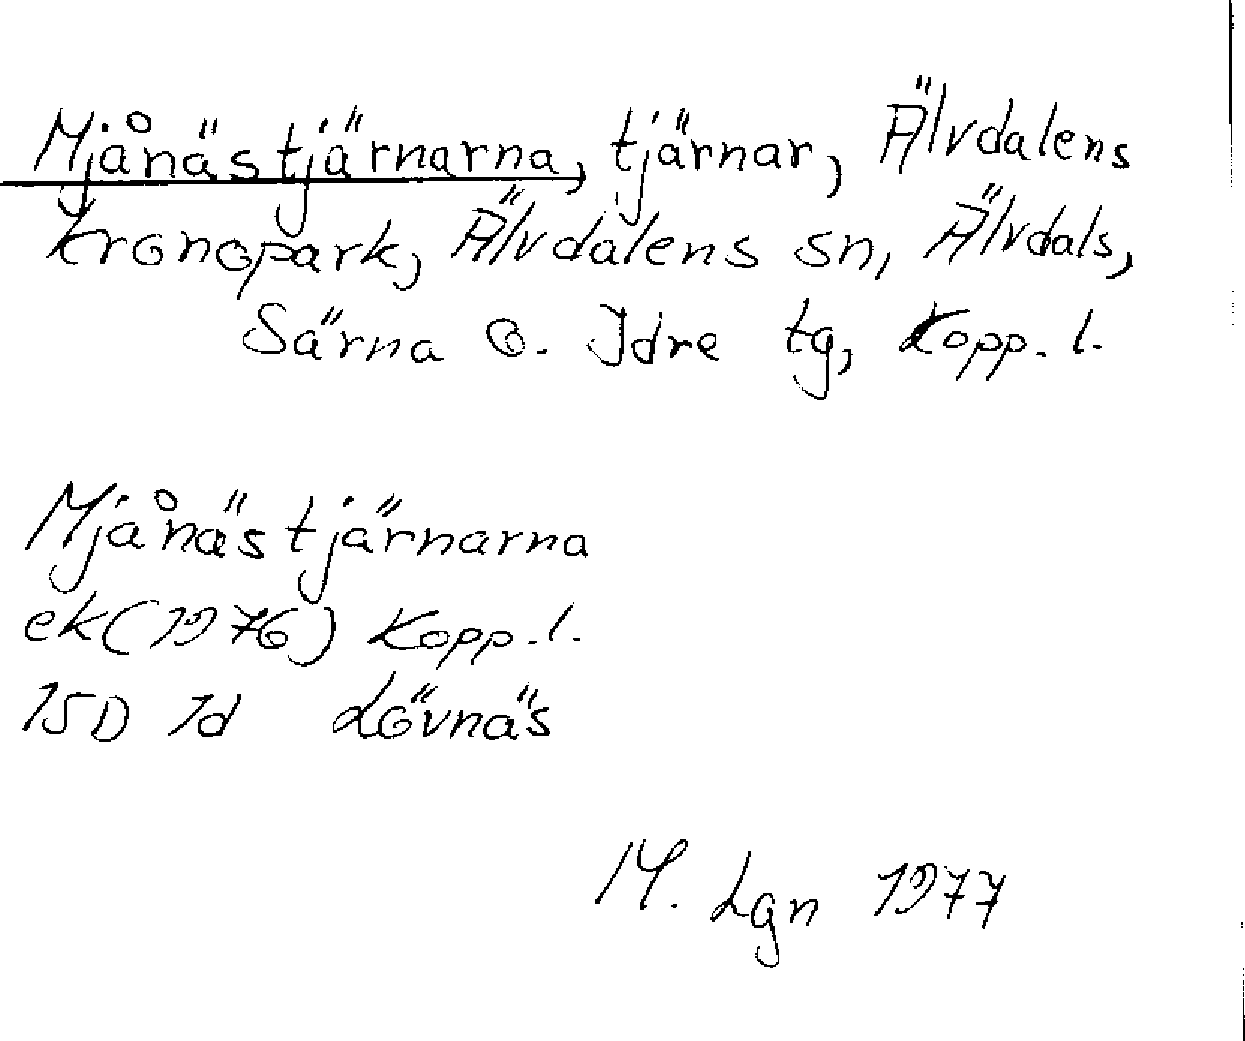 Mjånästjärnarna, tjärnar, Älvdalens
kronopark, Älvdalens sn, Älvdals,
Särna o. Idre tg, Kopp. l.
Mjånästjärnarna
ek(1976) Kopp. l.
15D 1d Lövnäs
M. Lgn 1977